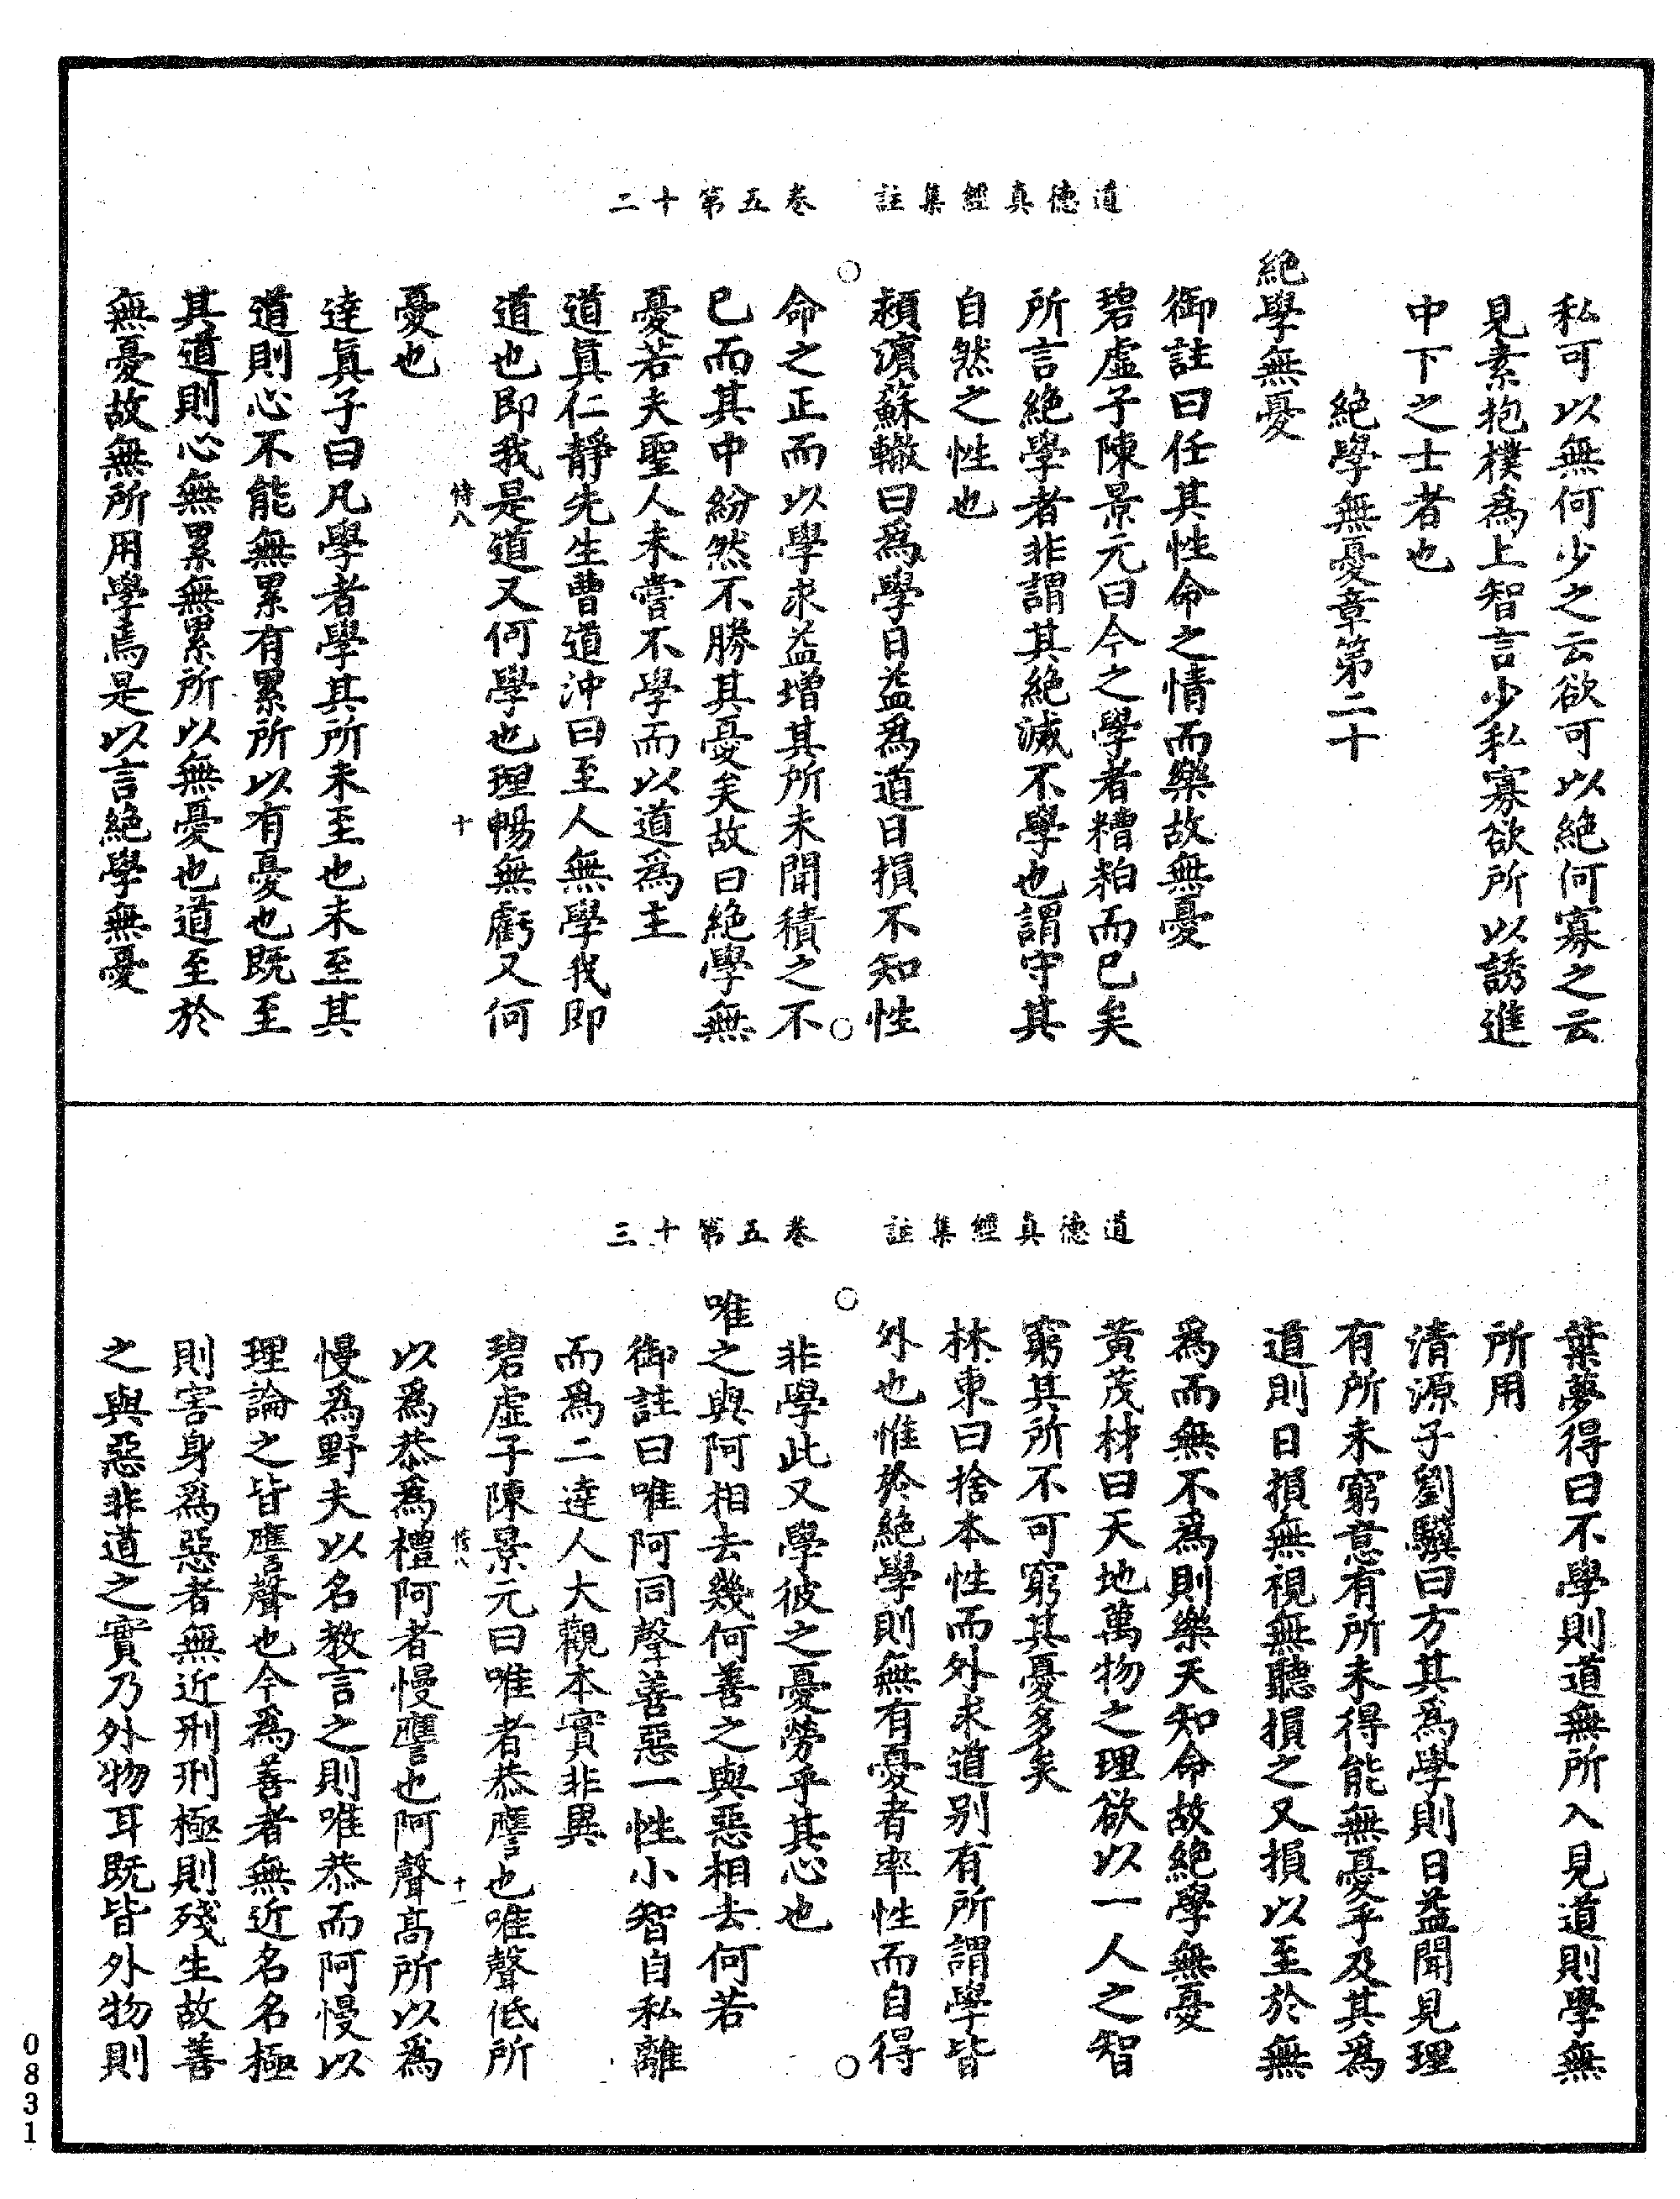 道德真經集註　卷五第十二
私可以無何少之云欲可以絶何寡之云
見素抱樸為上智言少私寡欲所以誘進
中下之士者也
絶學無憂章第二十
絶學無憂
御註曰任其性命之情而樂故無憂
碧虛子陳景元曰今之學者糟粕而已矣
所言絶學者非謂其絶滅不學也謂守其
自然之性也
潁濱蘇轍曰爲學日益爲道日損不知性
命之正而以學求益增其所未聞積之不
已而其中紛然不勝其憂矣故曰絶學無
憂若夫聖人未嘗不學而以道爲主
道眞仁靜先生曹道沖曰至人無學我即
道也即我是道又何學也理暢無虧又何
十
憂也
達眞子曰凡學者學其所未至也未至其
道則心不能無累有累所以有憂也既至
其道則心無累無累所以無憂也道至於
無憂故無所用學焉是以言絶學無憂
道德真經集註　卷五第十三
葉夢得曰不學則道無所入見道則學無
所用
清源子劉驥曰方其爲學則日益聞見理
有所未窮意有所未得能無憂乎及其爲
道則日損無視無聽損之又損以至於無
爲而無不爲則樂天知命故絶學無憂
黃茂材曰天地萬物之理欲以一人之智
窮其所不可窮其憂多矣
林東曰捨本性而外求道别有所謂學皆
外也惟於絶學則無有憂者率性而自得
非學此又學彼之憂勞乎其心也
唯之與阿相去幾何善之與惡相去何若
御註曰唯阿同聲善惡一性小智自私離
而爲二達人大觀本實非異
碧虛子陳景元曰唯者恭譍也唯聲低所
十一
以爲恭爲禮阿者慢譍也阿聲高所以爲
慢爲野夫以名教言之則唯恭而阿慢以
理論之皆譍聲也今爲善者無近名名極
則害身爲惡者無近刑刑極則殘生故善
之與惡非道之實乃外物耳既皆外物則
0831